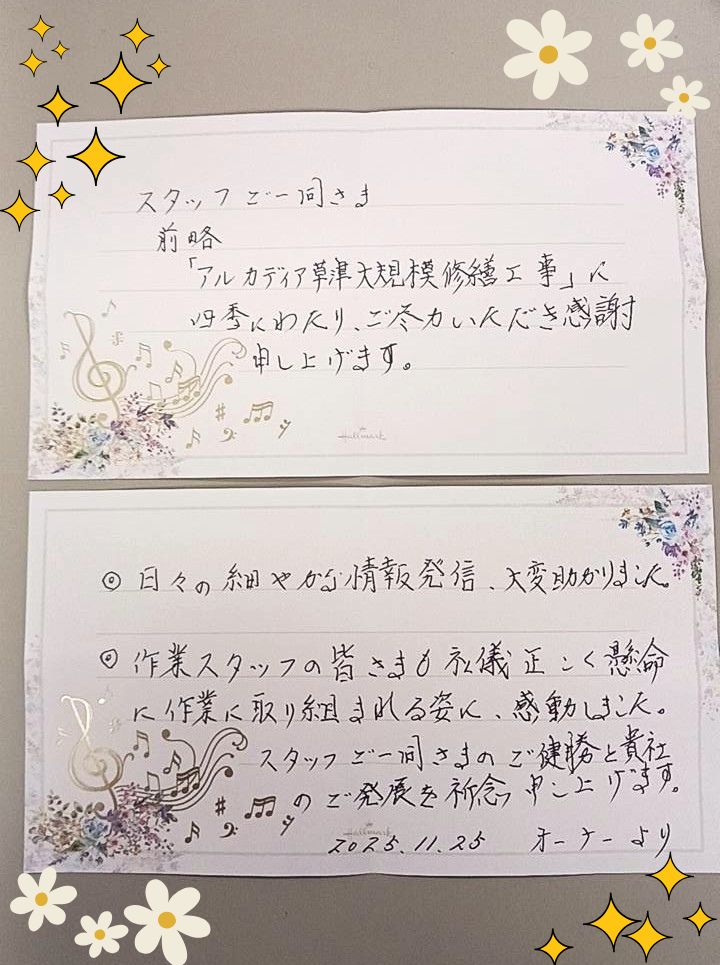 スタッフご一同さま
前略
「アルカディア草津大規模修繕工事」に
四季にわたり、ご尽力いただき感謝
申し上げます。
Hallmark
◎ 日々の細やかな情報発信、大変助かりました。
◎ 作業スタッフの皆さまも礼儀正しく懸命
に作業に取り組まれる姿に、感動しました。
スタッフご一同さまのご健勝と貴社
のご発展を祈念申し上げます。
Hallmark
2025.11.25 オーナーより